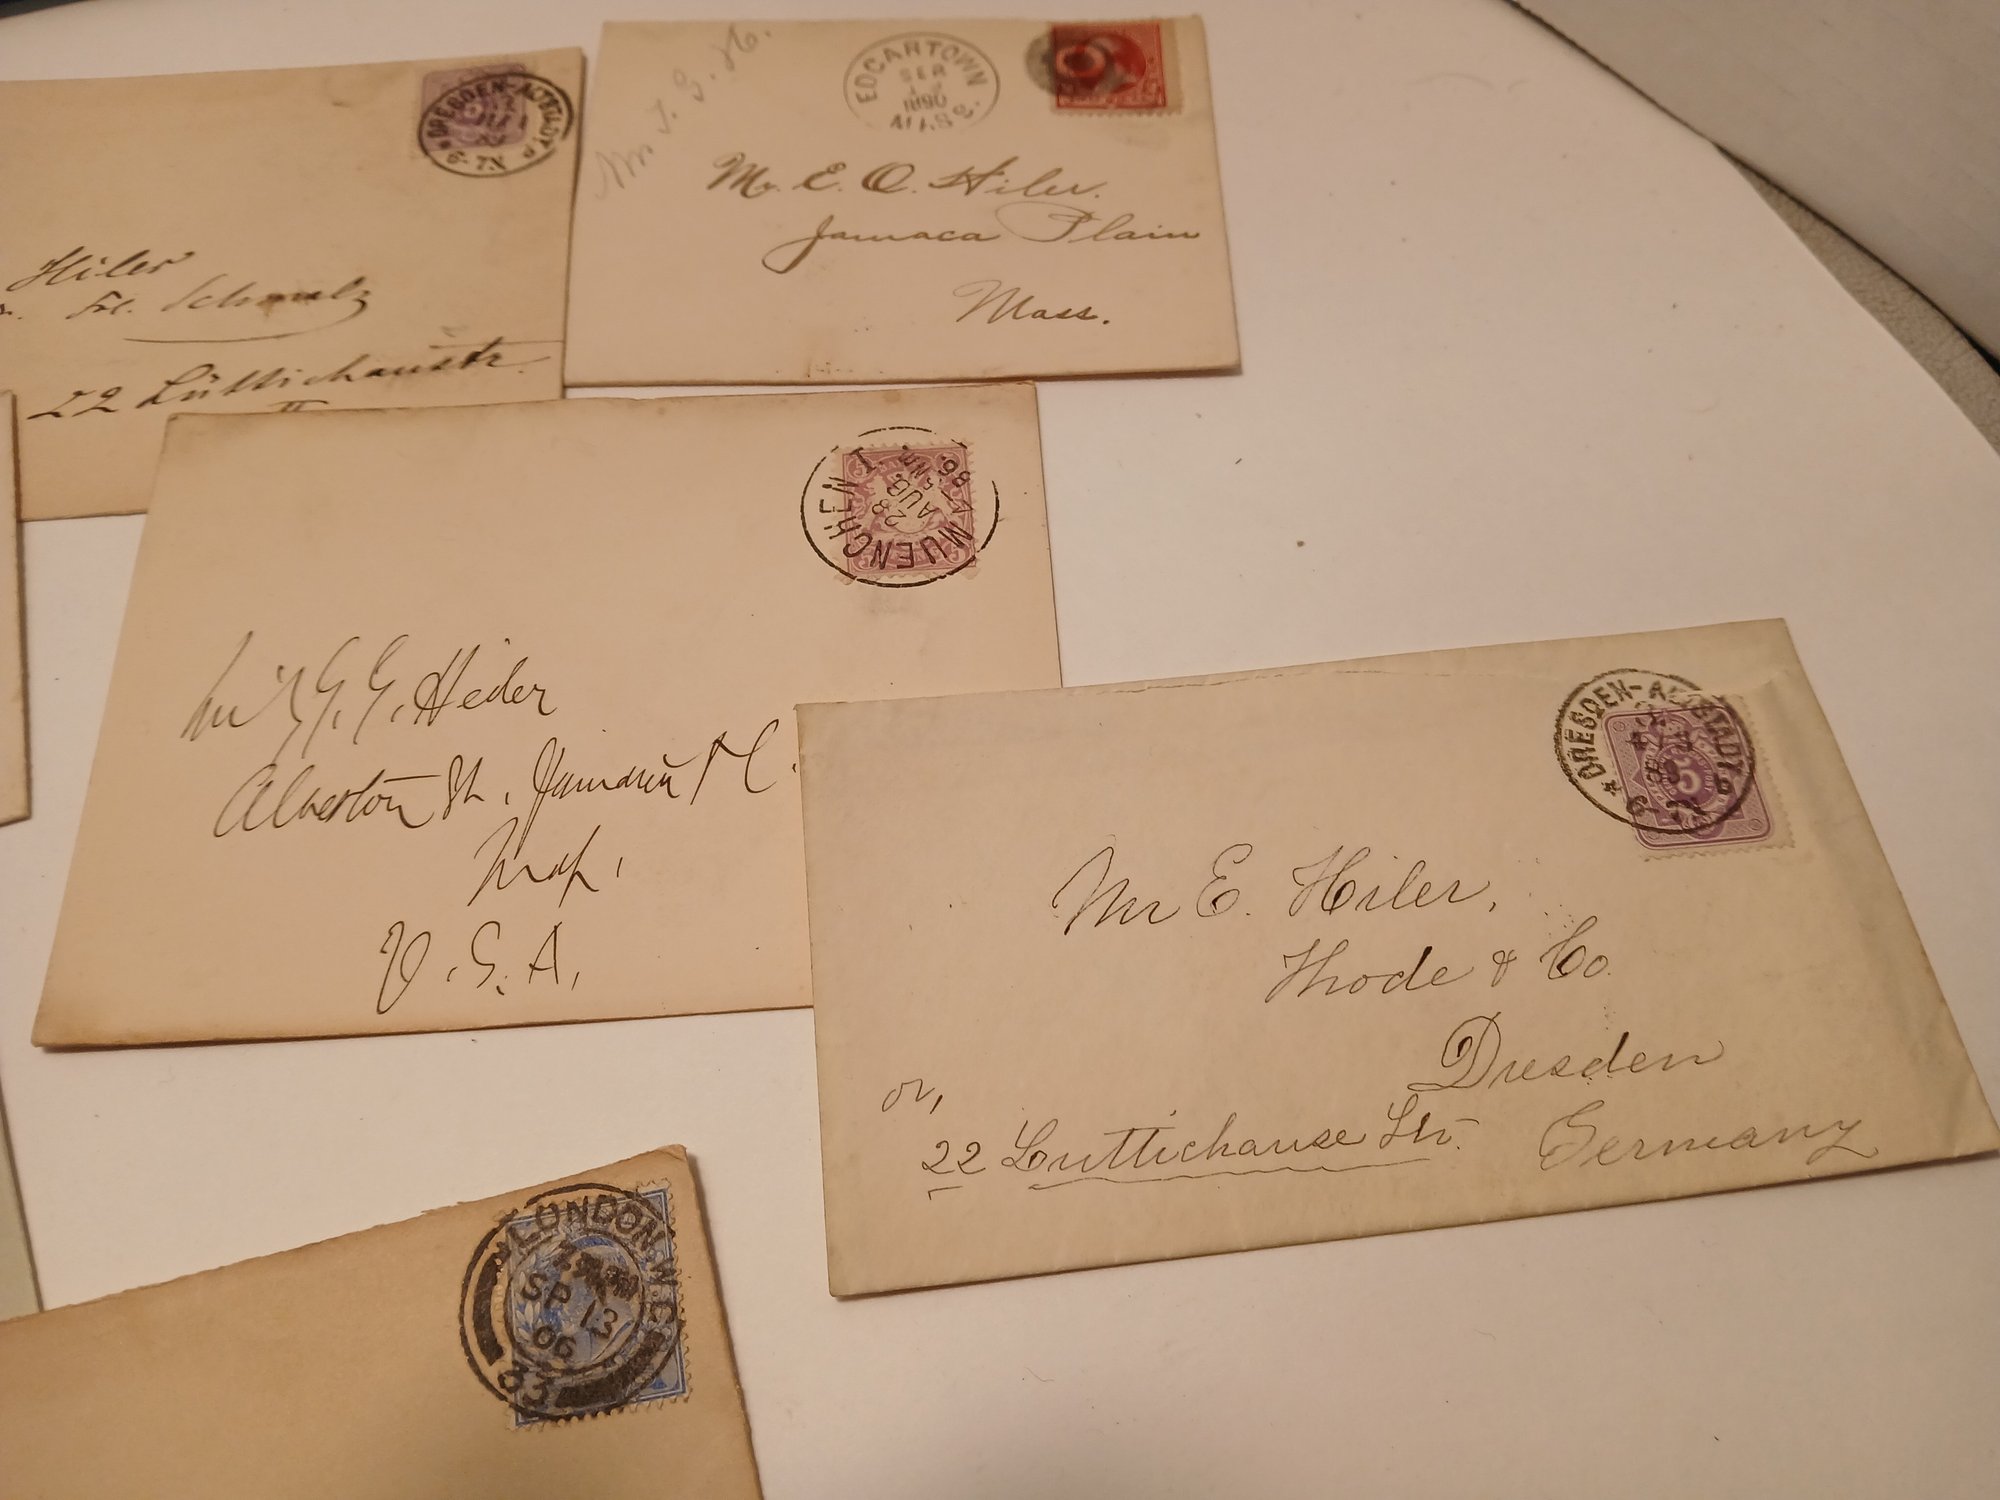 DRESDEN-ALTSTADT
6-7N
Hiler
Frl. Schmalz
22 Lüttichaustr.
II
EDGARTOWN
SEP
1890
MASS.
Mr. E. O. Hiler.
Jamaca Plain
Mass.
MUENCHEN I
28
AUG.
5 NM.
86.
G. G. Heder
Alverton St., Jamaica Pl.
U.S.A.
DRESDEN-ALTSTADT
5
Mr E. Hiler,
Throde & Co.
Dresden
Germany
or,
22 Luttichause Str.
LONDON.W.C
SP 13
06
33